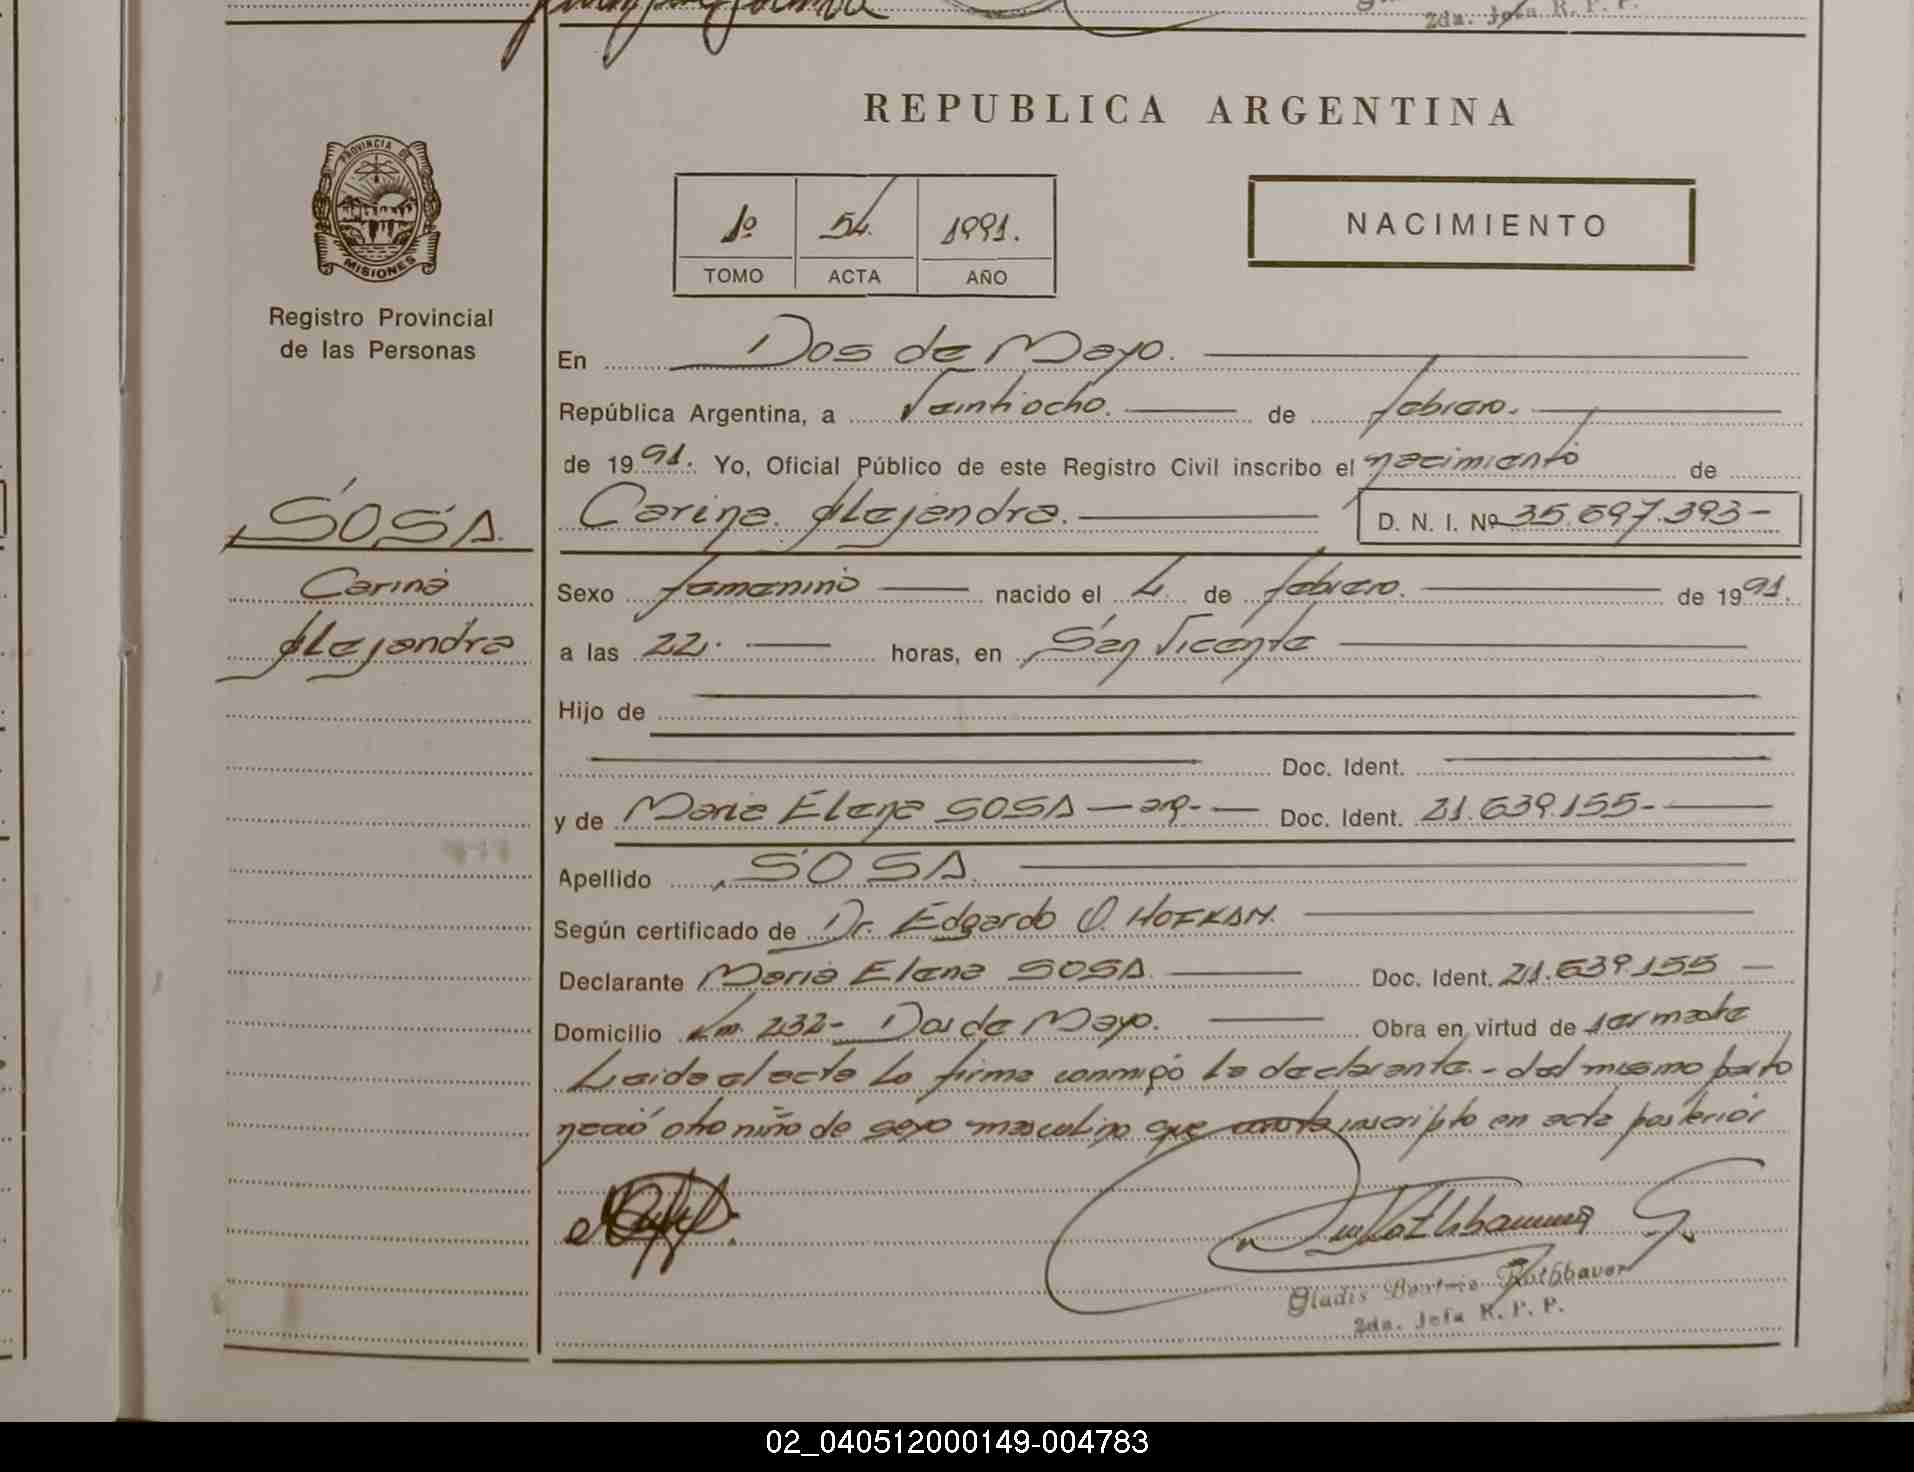 2da. Jefa R. P. P.
REPUBLICA ARGENTINA
PROVINCIA DE
MISIONES
Registro Provincial
de las Personas
1º 54. 1991.
TOMO ACTA AÑO
NACIMIENTO
En Dos de Mayo.
República Argentina, a Veintiocho. de febrero.
de 1991. Yo, Oficial Público de este Registro Civil inscribo el nacimiento de
Carina Alejandra. D. N. I. Nº 35.697.393-
SOSA.
Carina
Alejandra
Sexo femenino nacido el 4 de febrero. de 1991.
a las 22. horas, en San Vicente
Hijo de
Doc. Ident.
y de Maria Elena SOSA - arg- Doc. Ident. 21.639.155-
Apellido SOSA.
Según certificado de Dr. Edgardo O. HOFKAM.
Declarante Maria Elena SOSA. Doc. Ident. 21.639.155
Domicilio Km. 232- Dos de Mayo. Obra en virtud de ser madre
Leida el acta la firma conmigo la declarante.- del mismo parto
nació otro niño de sexo masculino que inscripto en acta posterior
Gladis Beatriz Rothbauer
2da. Jefa R. P. P.
02_040512000149-004783